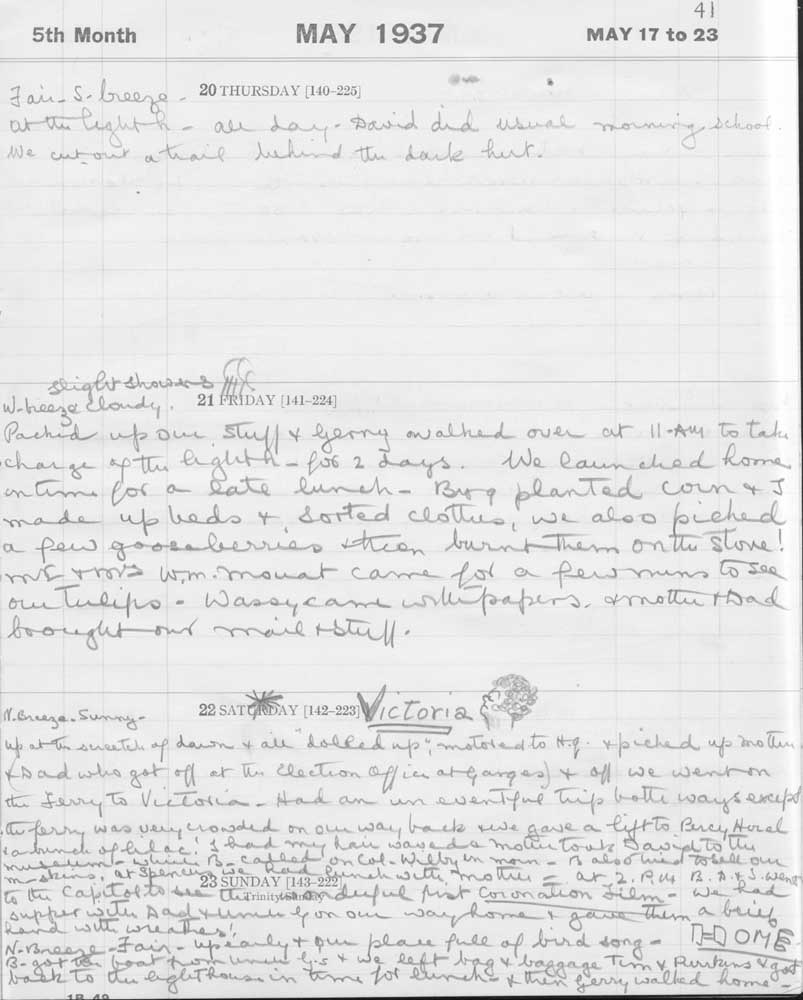 41
5th Month MAY 1937 MAY 17 to 23
Fair - S. breeze - 20 THURSDAY [140-225]
at the light h - all day - David did usual morning school.
We cut out a trail behind the dark hut.
slight showers
W-breeze cloudy. 21 FRIDAY [141-224]
Packed up our stuff & Gerry walked over at 11-AM to take
charge of the light h - for 2 days. We launched home
in time for a late lunch - planted corn & I
made up beds & sorted clothes, we also picked
a few gooseberries & then burnt them on the stove!
Mr & Mrs W.m. Mouat came for a few mins to see
our Tulips - came with papers. & mother & Dad
brought our mail & stuff.
N. Breeze - Sunny - 22 SATURDAY [142-223] Victoria
up at the of dawn & all "dolled up", motored to H.q. & picked up mother
& Dad who got off at the Election Office at Ganges) & off we went on
the Ferry to Victoria - Had an un eventful trip both ways except
the ferry was very crowded on our way back & we gave a lift to Percy
& a bunch of lilac! I had my hair waved & mother took David to the
museum - while B- called on Col. Wilby in morn - B also tried to sell our
m-skins, at we had lunch with mother - at 2. P.M B. D. & I. went
to the Capitol to see the wonderful first Coronation Film - We had
23 SUNDAY [143-222]
Trinity Sunday
supper with Dad & on our way home & gave them a brief
hand with wreathes!
N-Breeze - Fair - up early & our place full of bird song - HOME
B- got the boat from & we left bag & baggage Tim & & got
back to the lighthouse in time for lunch - & then Gerry walked home -